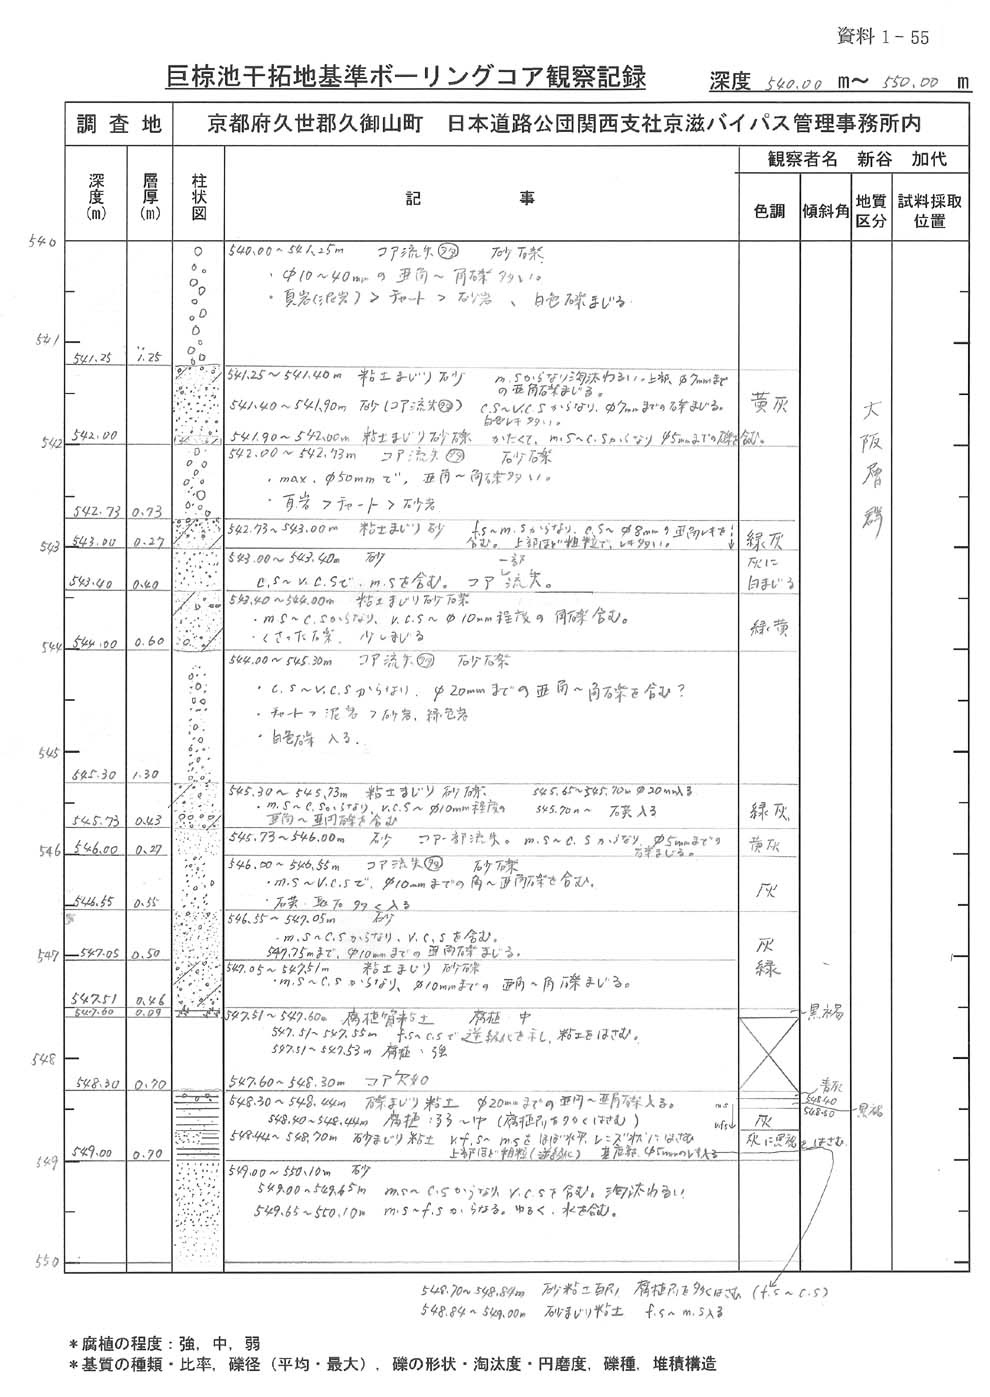 資料 1 - 55
巨椋池干拓地基準ボーリングコア観察記録 深度 540.00 m～ 550.00 m
調査地 京都府久世郡久御山町 日本道路公団関西支社京滋バイパス管理事務所内
観察者名 新谷 加代
深度(m) 層厚(m) 柱状図 記事 色調 傾斜角 地質区分 試料採取位置
540
540.00～541.25m コア流失 砂礫
・φ10～40mmの亜角～角礫多い。
・頁岩(泥岩)＞チャート＞砂岩、白色礫まじる.
541
541.25 1.25
541.25～541.40m 粘土まじり砂 m.Sからなり淘汰わるい。上部、φ7mmまで
の亜角礫まじる。
黄灰
大阪層群
541.40～541.90m 砂(コア流失) C.S～V.C.Sからなり、φ7mmまでの礫まじる。
白色レキ多い。
542.00
541.90～542.00m 粘土まじり砂礫 かたくて、m.S～C.Sからなりφ5mmまでの礫を含む。
542
542.00～542.73m コア流失 砂礫
・max. φ50mmで, 亜角～角礫多い。
・頁岩＞チャート＞砂岩
542.73 0.73
542.73～543.00m 粘土まじり砂 f.s～m.sからなり、C.S～φ8mmの亜角レキを
含む。上部ほど粗粒で、レキ多い。
543
543.00 0.27
緑灰
543.00～543.40m 砂 一部
C.S～V.C.Sで m.Sを含む。コア流失。
灰に
白まじる
543.40 0.40
543.40～544.00m 粘土まじり砂礫
・m.S～C.Sからなり、V.C.S～φ10mm程度の角礫含む。
・くさった礫、少しまじる
緑黄
544
544.00 0.60
544.00～545.30m コア流失 砂礫
・C.S～V.C.Sからなり、φ20mmまでの亜角～角礫を含む?
・チャート＞泥岩＞砂岩, 緑色岩
・白色礫 入る.
545
545.30 1.30
545.30～545.73m 粘土まじり砂礫 545.65～545.70m φ20mm入る
・m.S～C.Sからなり、V.C.S～φ10mm程度の 545.70m～ 石英入る
亜角～亜円礫を含む
緑灰
545.73 0.43
545.73～546.00m 砂 コア一部流失。m.S～C.Sからなり、φ5mmまでの
礫まじる。
黄灰
546
546.00 0.27
546.00～546.55m コア流失 砂礫
・m.S～V.C.Sで、φ10mmまでの角～亜角礫を含む。
灰
546.55 0.55
546.55～547.05m 砂
・m.S～C.Sからなり、V.C.Sを含む。
547.75mまで、φ10mmまでの亜角礫まじる。
灰
緑
547
547.05 0.50
547.05～547.51m 粘土まじり砂礫
・m.S～C.Sからなり、φ10mmまでの亜角～角礫まじる。
547.51 0.46
547.60 0.09
547.51～547.60m 腐植質粘土 腐植 中
黒褐
547.51～547.55m f.s～C.Sで逆級化を示し、粘土をはさむ。
547.51～547.53m 腐植:強
548
548.30 0.70
547.60～548.30m コア欠如
青灰
548.30～548.44m 礫まじり粘土 φ20mmまでの亜円～亜角礫入る。
548.40
548.40～548.44m 腐植:弱～中
548.50
黒褐
灰
548.44～548.70m 砂まじり粘土 v.f.s～m.sをほぼ水平、レンズ状にはさむ
上部ほど粗粒(逆級化) 基底部、φ5mmのレキ入る
灰に黒褐をはさむ
549
549.00 0.70
549.00～550.10m 砂
549.00～549.65m m.s～C.Sからなり、V.C.Sを含む。淘汰わるい
549.65～550.10m m.s～f.sからなる。ゆるく、水を含む。
550
548.70～548.84m 砂粘土互層 (f.s～C.S)
548.84～549.00m 砂まじり粘土 f.s～m.s入る
＊腐植の程度：強，中，弱
＊基質の種類・比率，礫径（平均・最大），礫の形状・淘汰度・円磨度，礫種，堆積構造